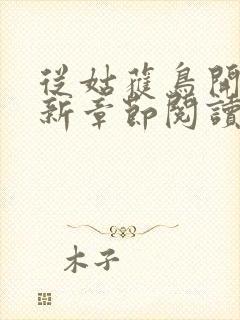 從姑獲鳥開
新章節閱讀
木子